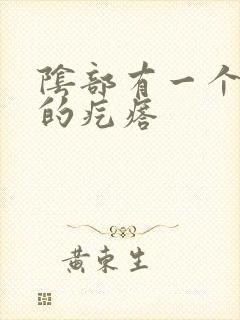 陰部有一个
的疙瘩
黄東生